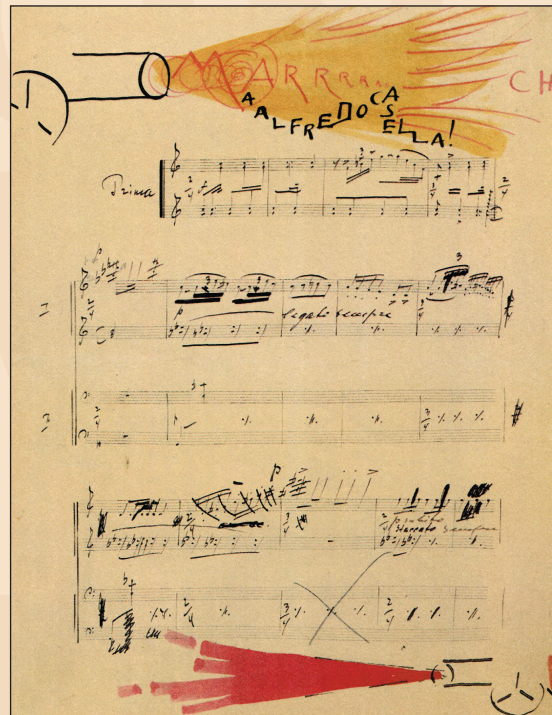 MARRRR... CH
A ALFREDO CASELLA!
Prima
legato sempre
p subito
staccato sempre